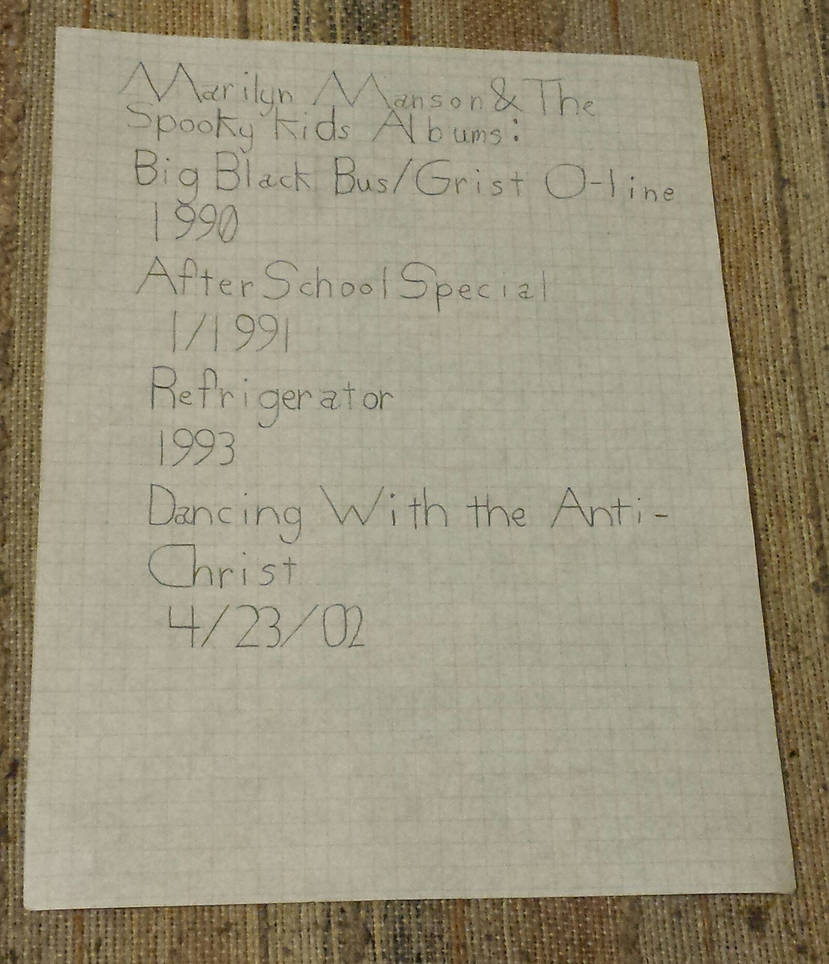 Marilyn Manson & The
Spooky Kids Albums:
Big Black Bus/Grist O-line
1990
After School Special
1/1991
Refrigerator
1993
Dancing With the Anti-
Christ
4/23/02